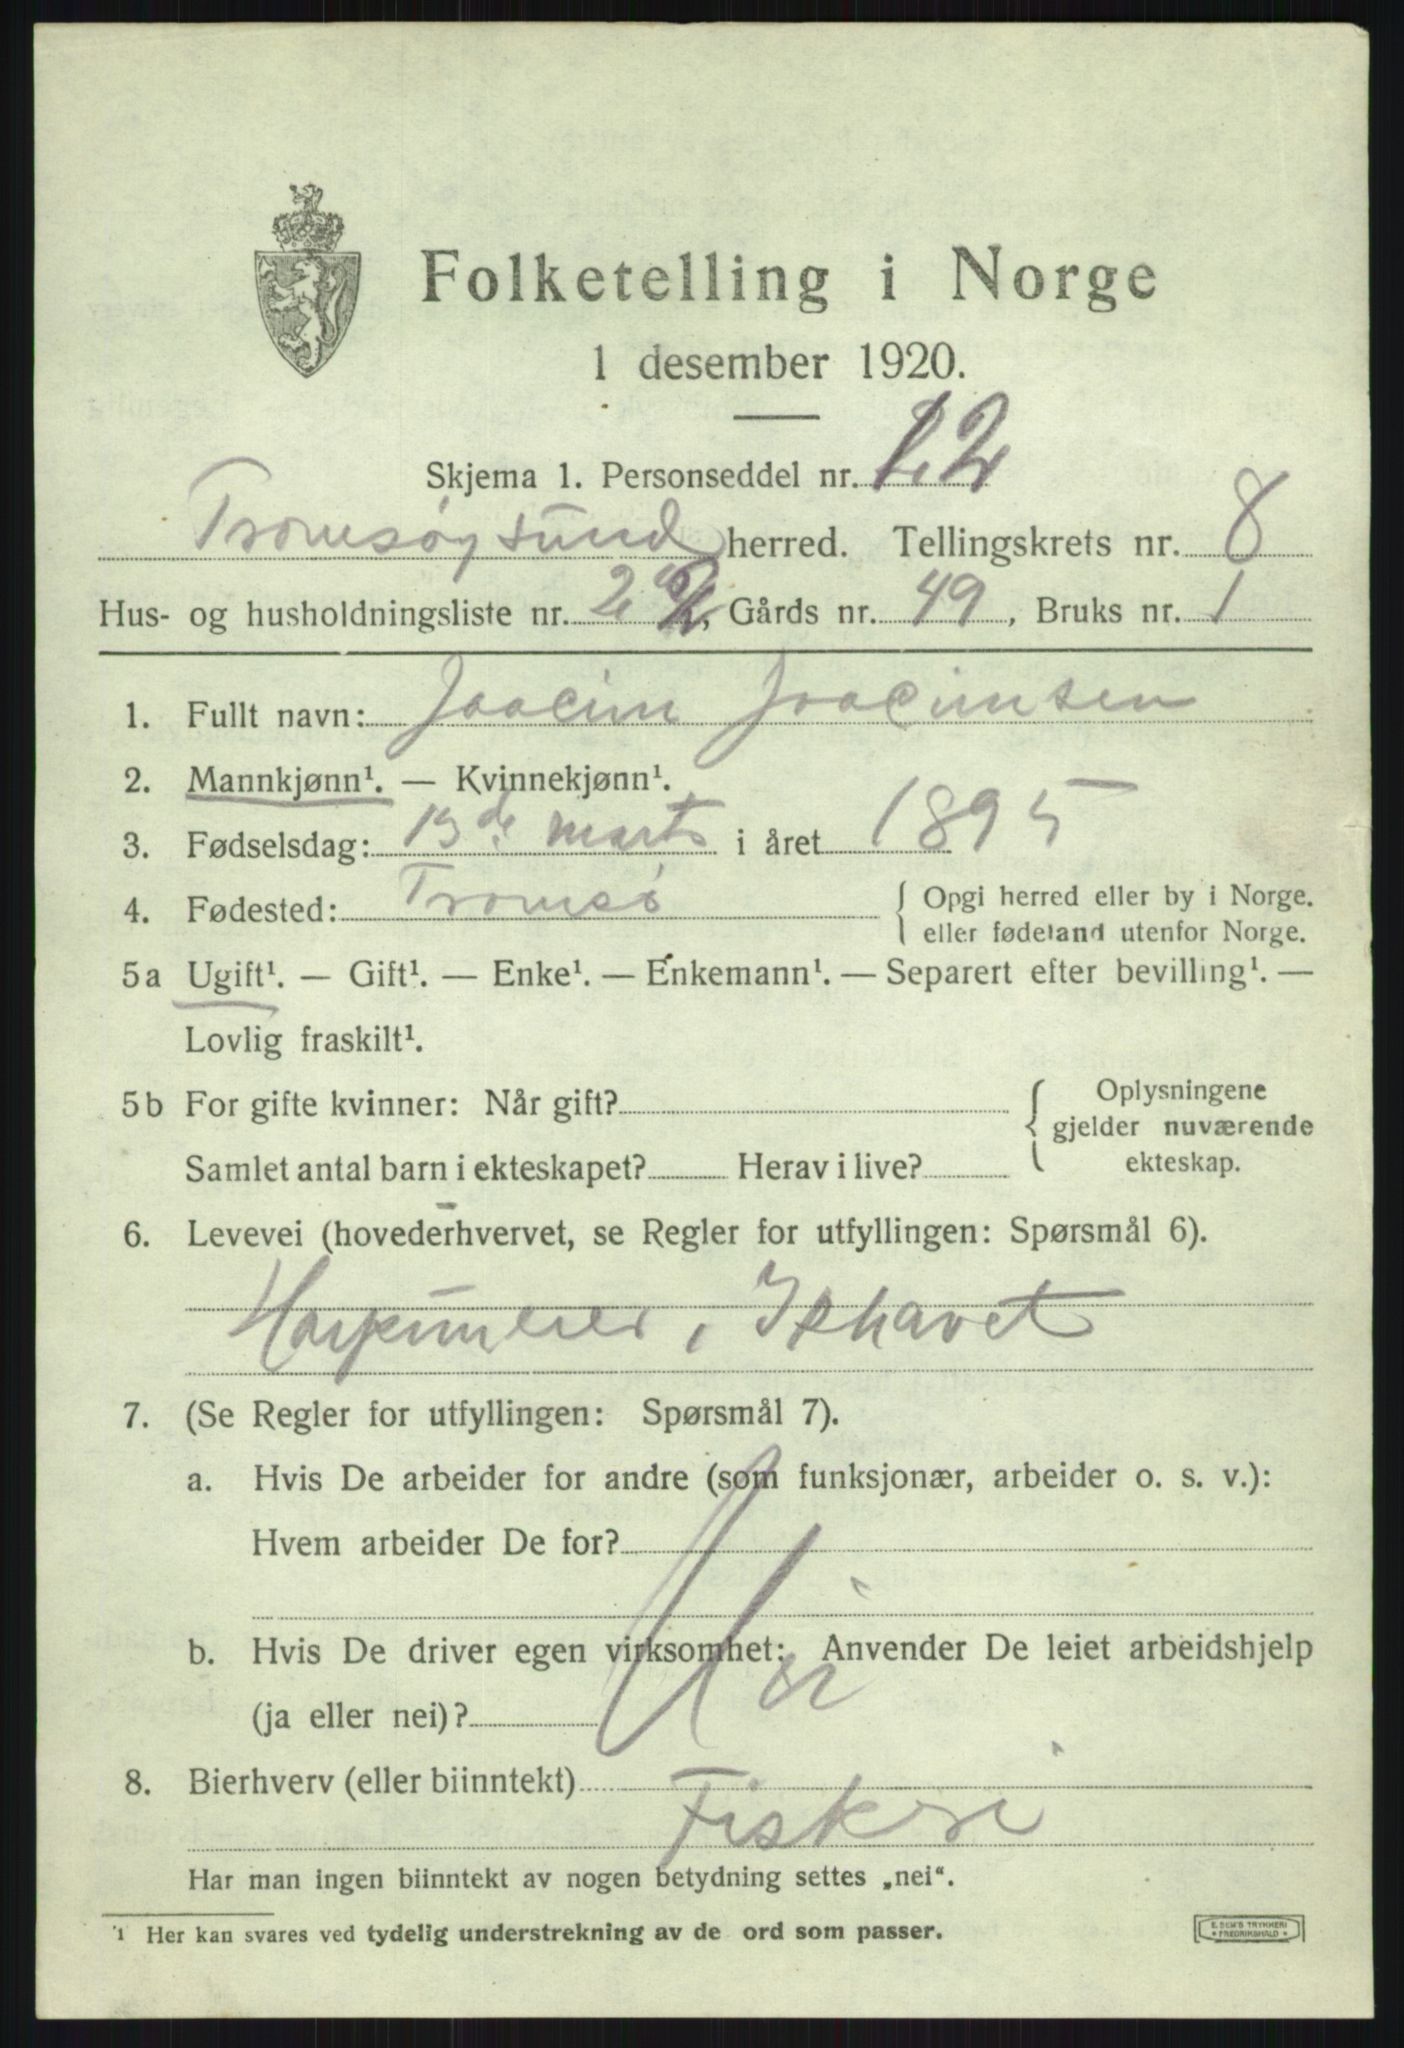 Folketelling i Norge
1 desember 1920.
Skjema 1. Personseddel nr. 12
Tromsøysund herred. Tellingskrets nr. 8
Hus- og husholdningsliste nr. 2, Gårds nr. 49, Bruks nr. 1
1. Fullt navn: Joacim Joacimsen
2. Mannkjønn¹. — Kvinnekjønn¹.
3. Fødselsdag: 13de marts i året 1895
4. Fødested: Tromsø { Opgi herred eller by i Norge.
eller fødeland utenfor Norge.
5a Ugift¹. — Gift¹. — Enke¹. — Enkemann¹. — Separert efter bevilling¹. —
Lovlig fraskilt¹.
5b For gifte kvinner: Når gift? { Oplysningene
gjelder nuværende
Samlet antal barn i ekteskapet? Herav i live? ekteskap.
6. Levevei (hovederhvervet, se Regler for utfyllingen: Spørsmål 6).
Harpunerer i Ishavet
7. (Se Regler for utfyllingen: Spørsmål 7).
a. Hvis De arbeider for andre (som funksjonær, arbeider o. s. v.):
Hvem arbeider De for?
b. Hvis De driver egen virksomhet: Anvender De leiet arbeidshjelp
(ja eller nei)? Nei
8. Bierhverv (eller biinntekt) Fiskeri
Har man ingen biinntekt av nogen betydning settes „nei“.
¹ Her kan svares ved tydelig understrekning av de ord som passer.
E. SEM'S TRYKKERI
* FREDRIKSHALD *